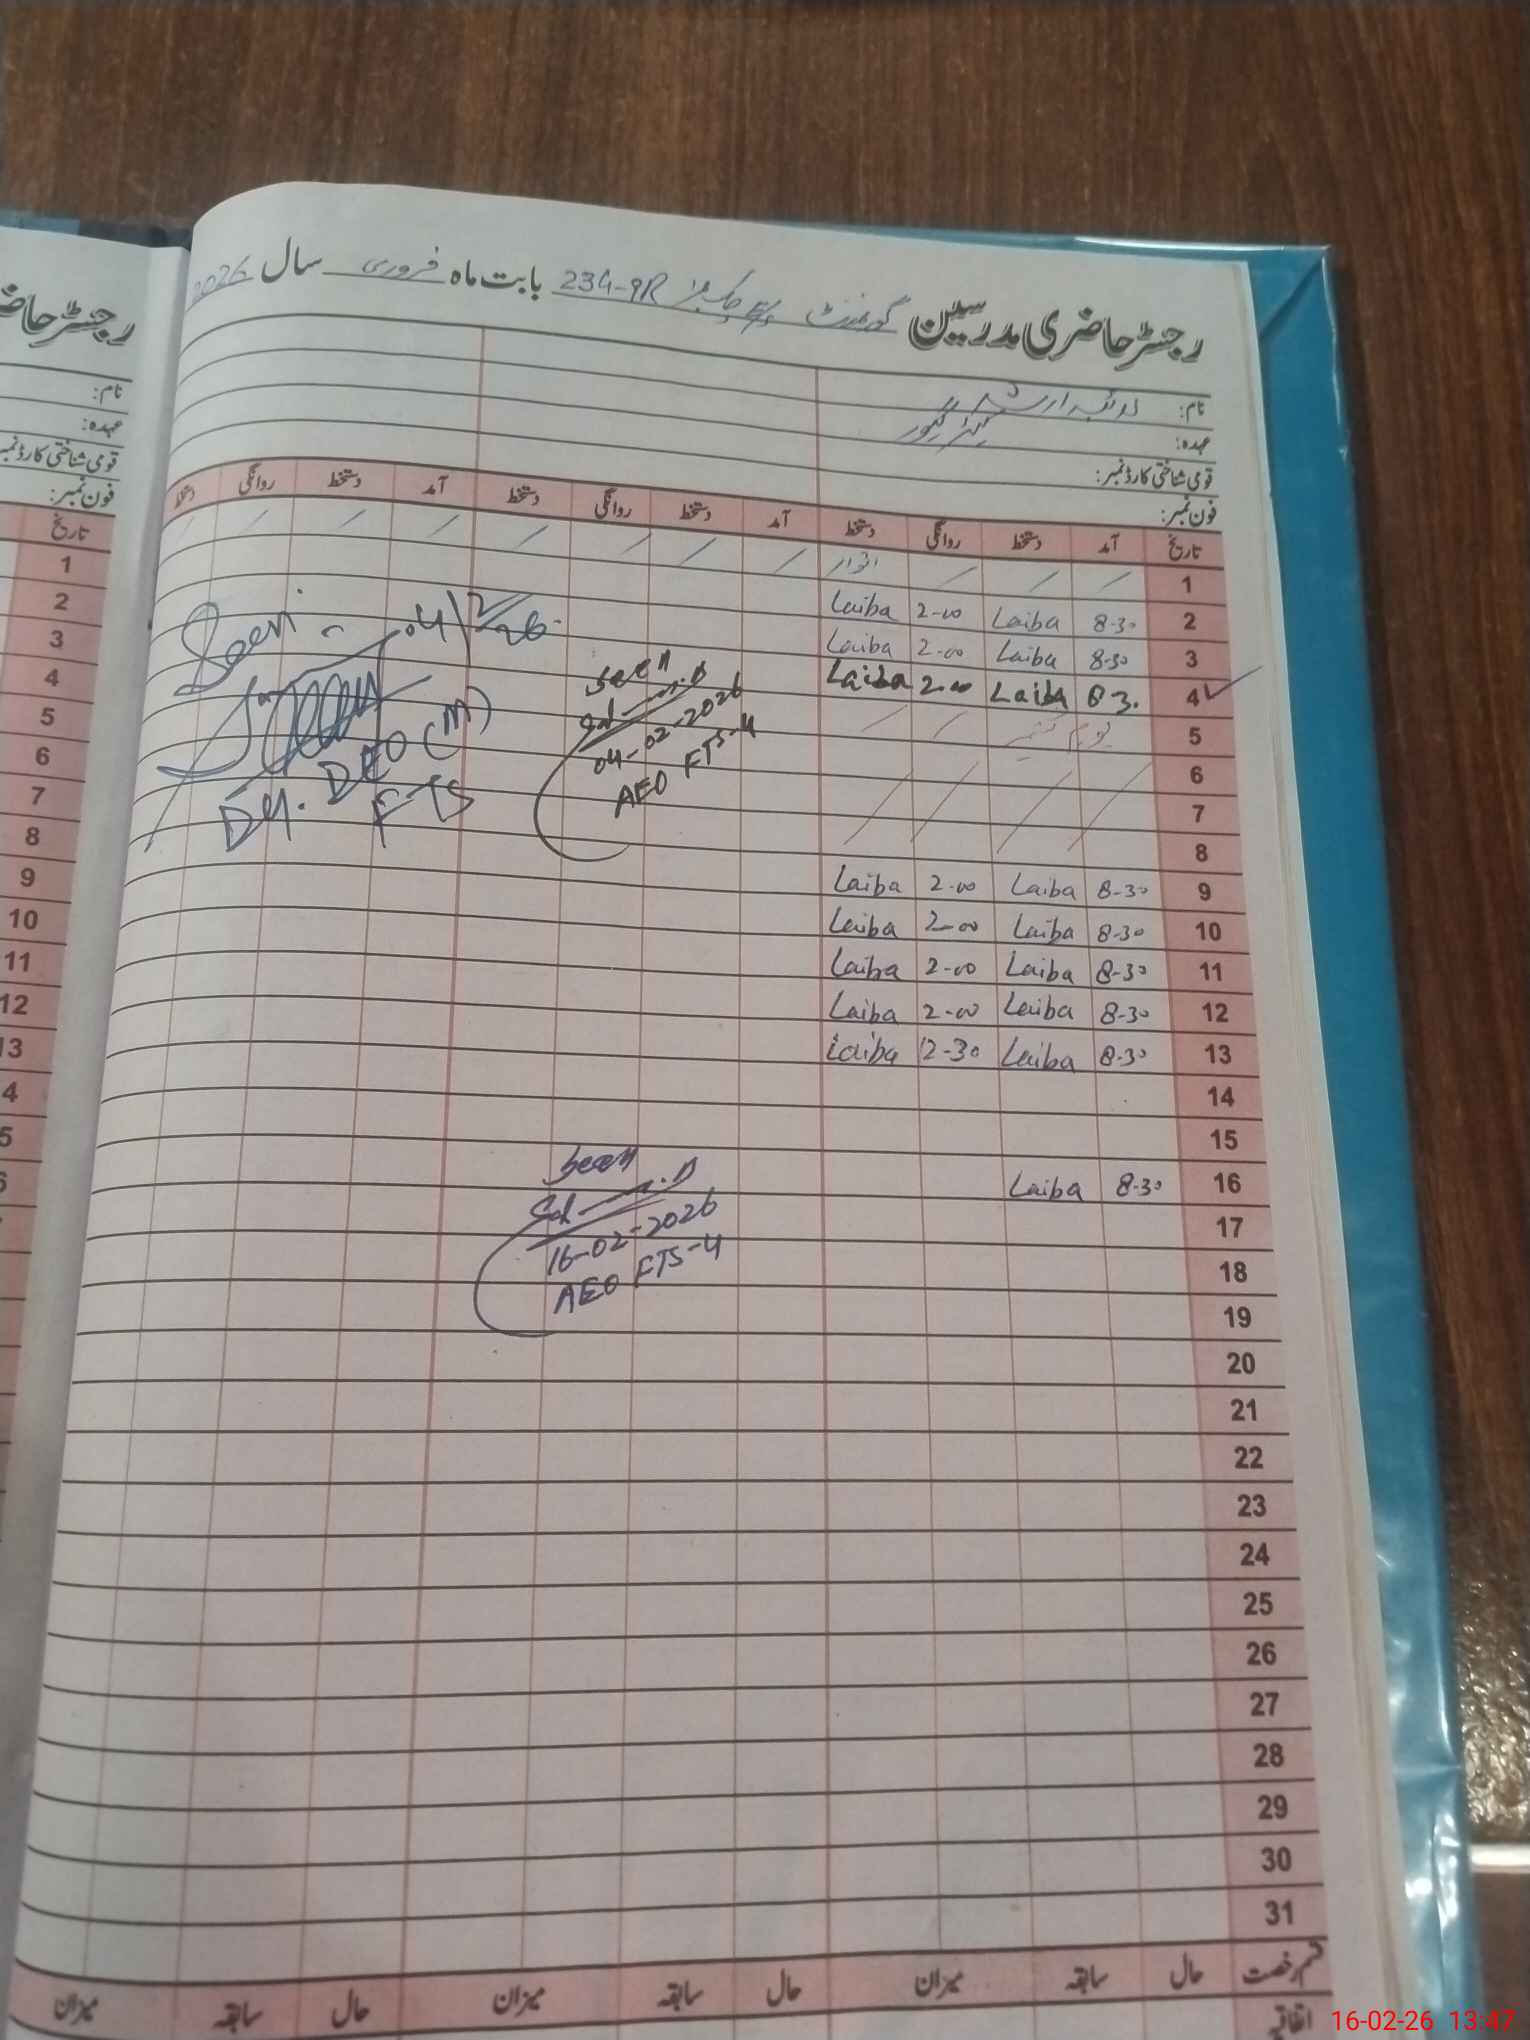 رجسٹر حاضری مدرسین گورنمنٹ 234-9R بابت ماہ فروری سال 2026
نام: لائبہ ارشد
عہدہ: کیئر گیور
قومی شناختی کارڈ نمبر:
فون نمبر:
تاریخ آمد دستخط روانگی دستخط آمد دستخط روانگی دستخط آمد دستخط روانگی دستخط
1 اتوار
2 8-30 Laiba 2-00 Laiba
3 8-30 Laiba 2-00 Laiba
4 8 3. Laiba 2-00 Laiba
5 یوم کشمیر
6
7
8
9 8-30 Laiba 2-00 Laiba
10 8-30 Laiba 2-00 Laiba
11 8-30 Laiba 2-00 Laiba
12 8-30 Laiba 2-00 Laiba
13 8-30 Laiba 12-30 Laiba
14
15
16 8-30 Laiba
17
18
19
20
21
22
23
24
25
26
27
28
29
30
31
قسم رخصت حال سابقہ میزان حال سابقہ میزان حال سابقہ میزان
اتفاقیہ
Seen
04-02-2026
AEO FTS-4
Seen
04/2/26
Dy. DEO (M)
FTS
Seen
16-02-2026
AEO FTS-4
رجسٹر حاضری
نام:
عہدہ:
قومی شناختی کارڈ نمبر
فون نمبر:
تاریخ
1
2
3
4
5
6
7
8
9
10
11
12
13
4
5
16-02-26 13:47